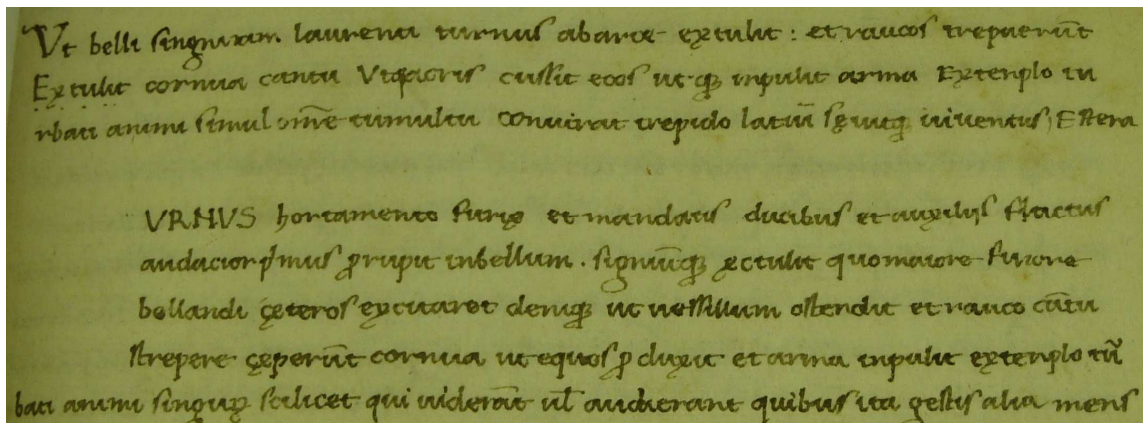 Vt belli signum laurenti turnus abarce extulit : et raucos strepuerūt
Extulit cornua cantu Vtqꝫ acris cussit eqos ut qꝫ inpulit arma Extenplo tu
rbati animi simul omē tumultu Coniurat trepido latiū sęuitqꝫ iuuentus, Effera
VRNVS hortamento furię et mandatis ducibus et auxiliis
audacior pͥmus ꝓrupit inbellum . signūqꝫ extulit quomaiore furore
bellandi cęteros excitaret deniqꝫ ut uessillum ostendit et rauco cātu
strepere cęperūt cornua ut equos ꝓduxit et arma inpulit extenplo tur
bati animi scilicet qui uiderāt ul̄ audierant quibus ita gestis alia mens